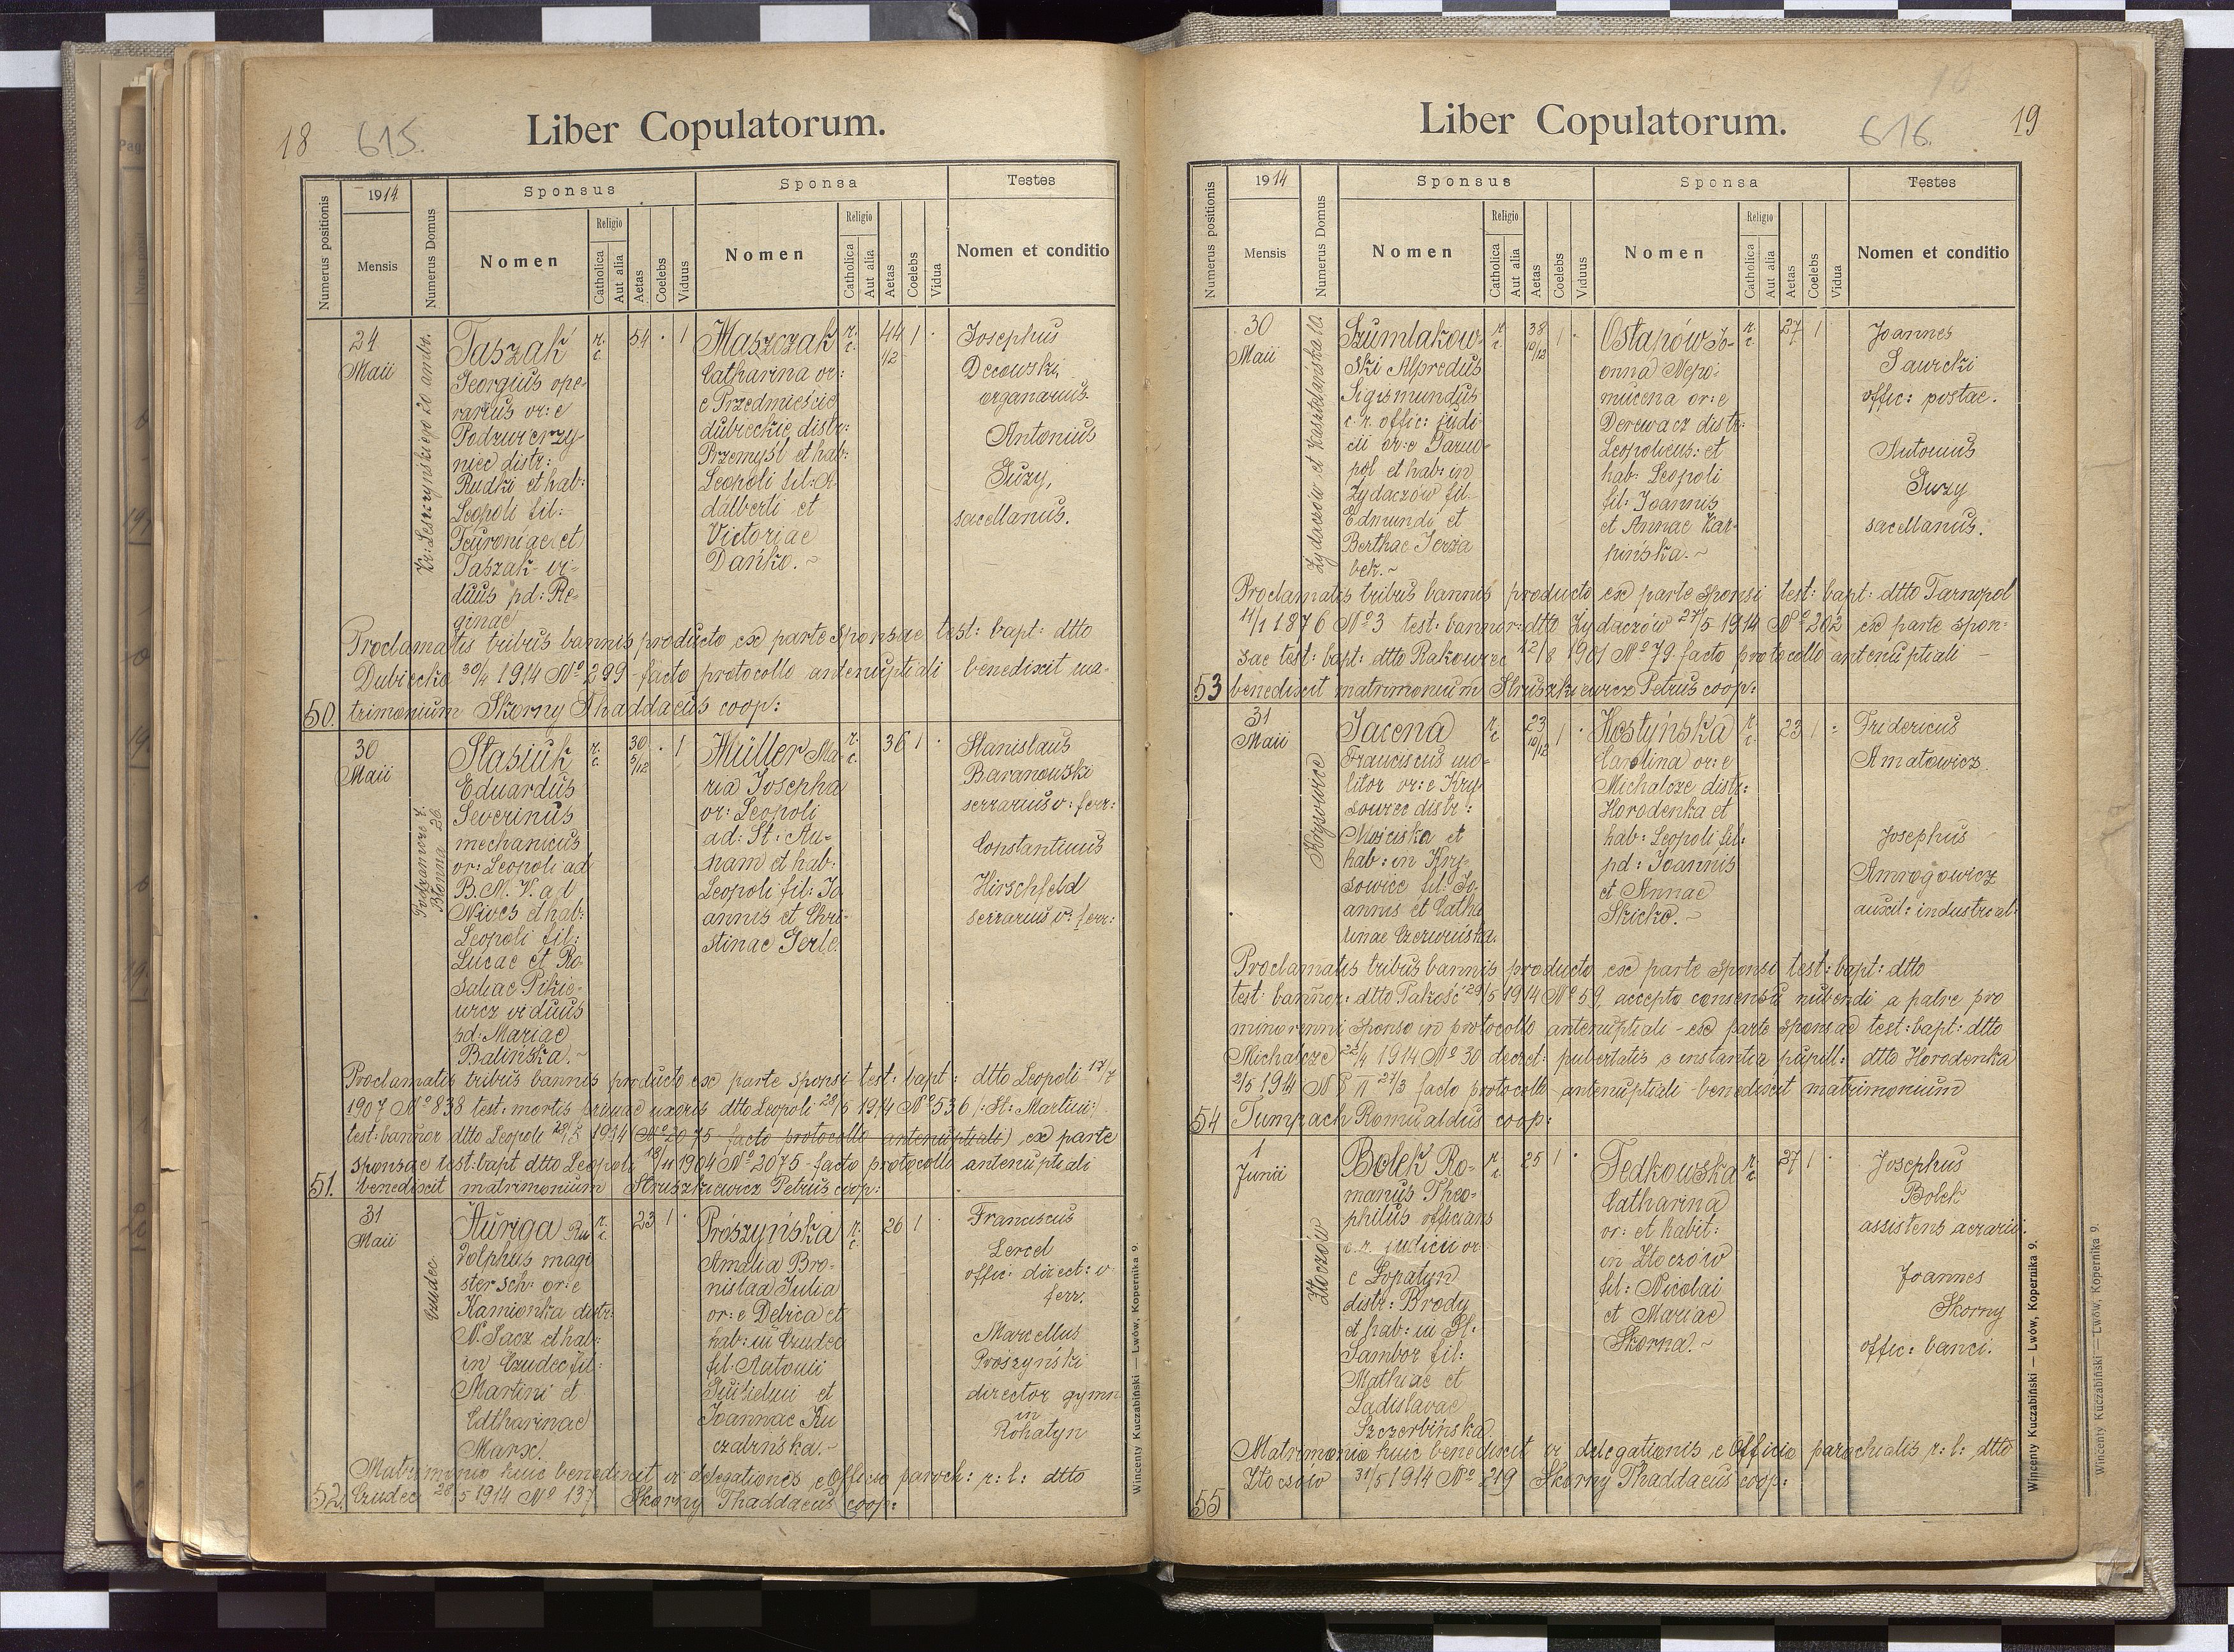 18 615.
Liber Copulatorum.
Numerus positionis
1914
Mensis
Numerus Domus
Sponsus
Nomen
Religio
Catholica
Aut alia
Aetas
Coelebs
Viduus
Sponsa
Nomen
Religio
Catholica
Aut alia
Aetas
Coelebs
Vidua
Testes
Nomen et conditio
24
Maii
Taszak
Georgius ope-
rarius or: e
niec distr:
Rudki et hab:
Leopoli fil:
et
Taszak vi-
duus pd: Re-
ginae
r. c. 54 . 1
Maszczak
Catharina or:
e Przedmieście
dubieckie distr:
Przemyśl et hab:
Leopoli fil: A-
dalberti et
Victoriae
Dańko. ~
r. c. 44 1/2 1 .
Josephus
organarius.
Antonius
sacellanus.
Proclamatis tribus bannis producto ex parte Sponsae test: bapt: dtto
Dubiecko 30/4 1914 Nº 299 facto protocollo antenuptiali benedixit ma-
50. trimonium Skorny Thaddaeus coop:
30
Maii
Błonna 26.
Stasiuk
Eduardus
Severinus
mechanicus
or: Leopoli ad
B. M. V. ad
Nives et hab:
Leopoli fil:
Lucae et Ro-
saliae Pikie-
wicz viduus
pd: Mariae
Balińska. ~
r. c. 30 5/12 . 1
Müller Ma-
ria Josepha
or: Leopoli
ad: St: An-
nam et hab:
Leopoli fil: Jo
annis et Chri-
stinae Jerle.
r. c. 36 1 .
Stanislaus
Baranowski
serrarius v: ferr:
Constantinus
Hirschfeld
serrarius v: ferr:
Proclamatis tribus bannis producto ex parte Sponsi test: bapt: dtto Leopoli 17/7
1907 Nº 838 test: mortis primae uxoris dtto Leopoli 28/5 1914 Nº 536 /: St: Martini:/
test: bannor dtto Leopoli 28/5 1914 (Nº 2075 facto protocollo antenuptiali) ex parte
sponsae test: bapt dtto Leopoli 18/11 1904 Nº 2075 facto protocollo antenuptiali
51. benedixit matrimonium Struszkiewicz Petrus coop:
31
Maii
Czudec
Auriga Ru
dolphus magi
ster sch: or: e
Kamionka distr:
N. Sącz et hab:
in Czudec fil:
Martini et
Catharinae
Marx.
r. c. 23 1 .
Prószyńska
Amalia Bro-
nislaa Julia
or: e Debica et
hab: in Czudec
fil: Antonii
Guilelmi et
Joannae Ku
czabińska. ~
r. c. 26 1 .
Franciscus
Lercel
offic: direct: v.
ferr.
Marcellus
Prószyński
director gymn
in
Rohatyn
Matrimonio huic benedixit vi delegationes e Officio paroch: r: l: dtto
52. Czudec 28/5 1914 Nº 137 Skorny Thaddaeus coop:
Wincenty Kuczabiński — Lwów, Kopernika 9.
Liber Copulatorum.
616.
19
Numerus positionis
1914
Mensis
Numerus Domus
Sponsus
Nomen
Religio
Catholica
Aut alia
Aetas
Coelebs
Viduus
Sponsa
Nomen
Religio
Catholica
Aut alia
Aetas
Coelebs
Vidua
Testes
Nomen et conditio
30
Maii
Żydaczów et Kasztelańska 10.
Szumlakow-
ski Alpredus
Sigismundus
c. r. offic: judi-
cii or: e Tarno-
pol et hab: in
Żydaczów fil:
Edmundi et
Berthae Jerza
bek. ~
r. c. 38 10/12 1 .
Ostapów Jo-
anna Nepo-
mucena or: e
Derewacz distr:
Leopoliens: et
hab: Leopoli
fil: Joannis
et Annae Kar-
pińska. ~
r. c. 27 1
Joannes
Sawicki
offic: postae.
Antonius
sacellanus.
Proclamatis tribus bannis producto ex parte Sponsi test: bapt: dtto Tarnopol
11/1 1876 Nº 3 test: bannor: dtto Żydaczów 27/5 1914 Nº 202 ex parte spon-
sae test: bapt: dtto Rakowiec 12/8 1901 Nº 79 facto protocollo antenuptiali —
53 benedixit matrimonium Struszkiewicz Petrus coop:
31
Maii
Krysowice
Jacena
Franciscus mo-
litor or: e Kry-
sowice distr:
Mościska et
hab: in Kry-
sowice fil: Jo-
annis et Catha
rinae Czerwińska.
r. c. 23 10/12 1 .
Hostyńska
Carolina or: e
Michalcze distr:
Horodenka et
hab: Leopoli fil:
pd: Joannis
et Annae
Skicko. ~
r. c. 23 1 :
Fridericus
Amatowicz
Josephus
Amrogowicz
auxil: industrial:
Proclamatis tribus bannis producto ex parte Sponsi test: bapt: dtto
test: bannor: dtto Pakość 29/5 1914 Nº 59, accepto consensu nubendi a patre pro
minorenni sponso in protocollo antenuptiali - ex parte sponsae test: bapt: dtto
Michalcze 22/4 1914 Nº 30 decret: pubertatis e instantia pupill: dtto Horodenka
2/5 1914 27/3 facto protocollo antenuptiali benedixit matrimonium
54 Tumpach Romualdus coop:
1
Junii
Złoczów
Bolek Ro-
manus Theo-
philus officians
c. r. judicii or:
e Łopatyn
distr: Brody
et hab: in St:
Sambor fil:
Mathiae et
Ladislavae
Szczerbińska.
r. c. 25 1 .
Fedkowska
Catharina
or: et habit:
in Złoczów
fil: Nicolai
et Mariae
Skorna. ~
r. c. 27 1 .
Josephus
Bolek
assistens aerarii.
Joannes
Skorny
offic: banci.
Matrimonio huic benedixit vi delegationis e Officio parochialis r: l: dtto
Złoczów 31/5 1914 Nº 219 Skorny Thaddaeus coop:
55
Wincenty Kuczabiński — Lwów, Kopernika 9.
Wincenty Kuczabiński — Lwów, Kopernika 9.